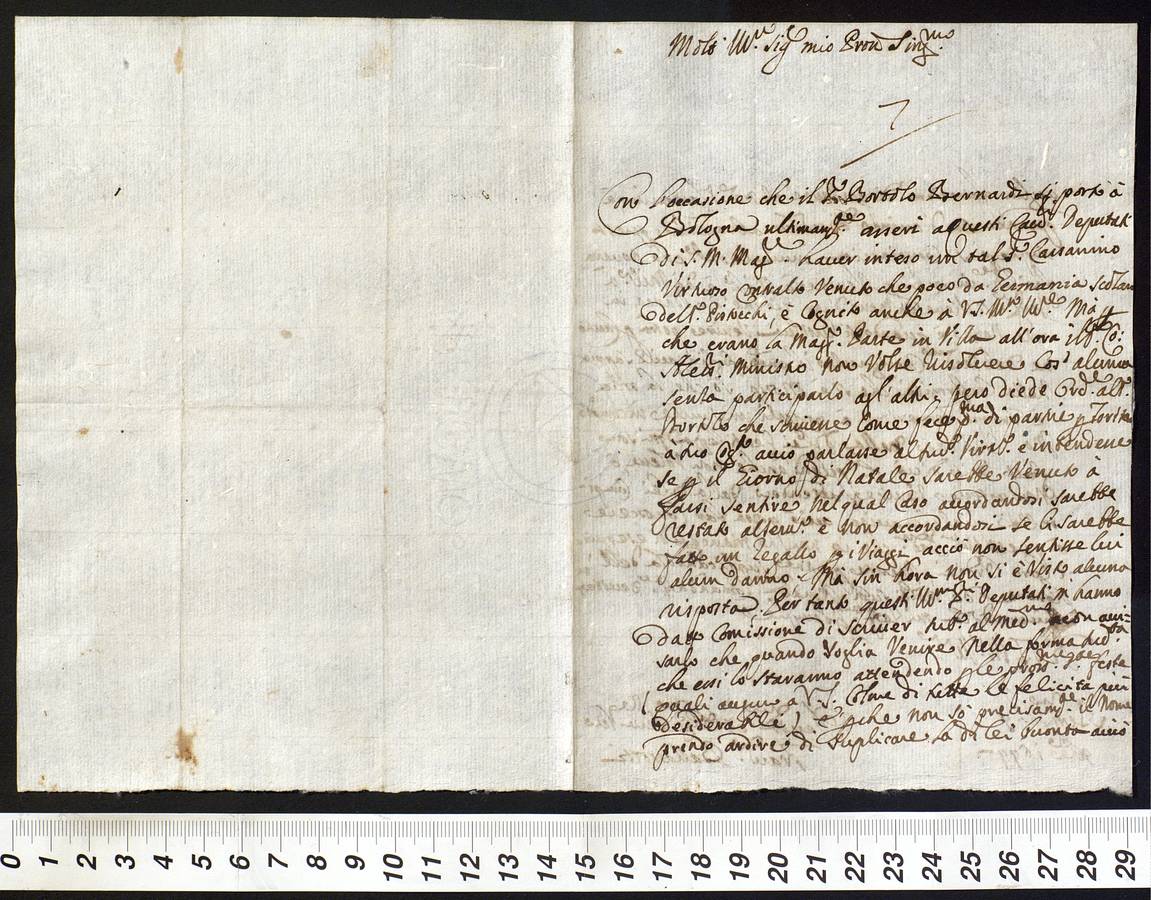 Molt' Ill.re Sig.r mio Pron Sing.mo
Con l'occasione che il S.r Bortolo Bernardi si portò à
Bologna ultimam.te asserì a questi Deputati
di S. M. Mag.re haver inteso un tal S.r Cassanino
Virtuoso Contralto Venuto che poco da Germania Scolaro
dell. Pistocchi, è Cognito anche à V.S. M.to Ill.re Mà
che erano la Magg. Parte in Villa all'ora il Co:
Ministro non volse risolvere cos' alcuna
senza participarlo agl'altri, però diede Ord.e al S.r
Bortolo che scrivere come fece p.ma di partire
à acciò parlasse al sud.o Virt.o e intendere
se p il Giorno di Natale sarebbe Venuto à
farsi sentire nel qual Caso accordandosi sarebbe
restato e non accordandosi se li sarebbe
fatto un regallo p i Viaggi acciò non sentisse lui
alcun danno. Mà sin hora non si è Visto alcuna
risposta. Per tanto questi Ill.mi S.ri Deputati m hanno
dato Comissione di scriver sub.o al Med.mo avi-
sarlo che quando Voglia Venire nella forma sud.ta
che essi lo staranno attendendo p le pross.me S.te feste
(quali auguro à V.S. Colme di tutte le felicità più
desiderabile) E p che non sò precisam.te il Nome
prendo ardire di suplicare la di lei buontà acciò
0 1 2 3 4 5 6 7 8 9 10 11 12 13 14 15 16 17 18 19 20 21 22 23 24 25 26 27 28 29